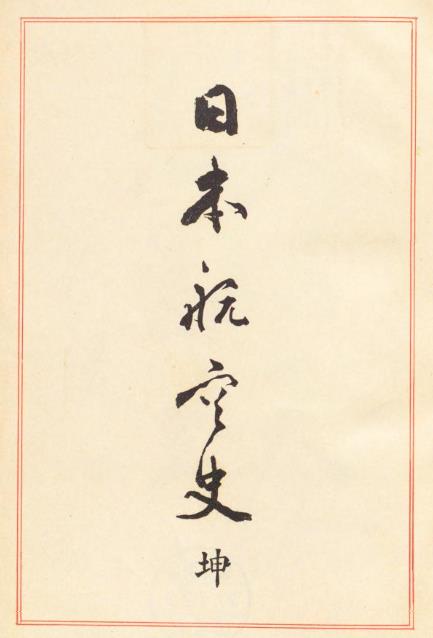 日本航空史
坤